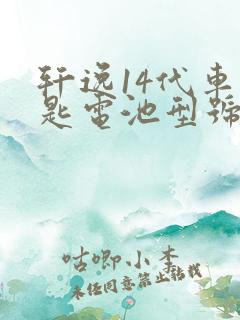 轩逸14代車
匙電池型號
咕唧小李
未经同意禁止转载